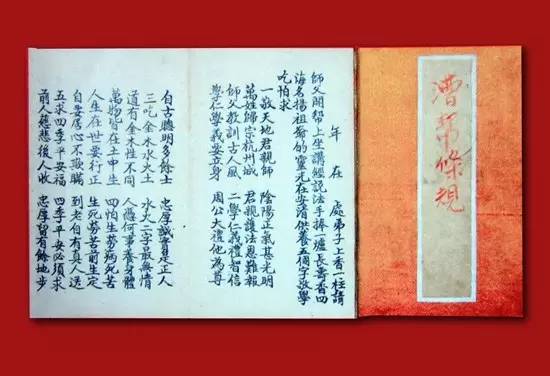 漕幇條規
年 在 處弟子上香一柱請
師父開幇上坐講經說法手捧一爐長壽香四
海名揚祖爺的靈光在安清傑養五個字敬學
吃怕求
一敬天地君親師 陰陽正氣甚光明
萬姓歸宗杭州城 君親護法恩難報
師父教訓古人風 二學仁義禮智信
學仁學義要立身 周公大禮他為尊
自古聰明多餘士 忠厚誠實是正人
三吃金木水火土 水火二字最無情
道有金木性不同 人憑何事養身體
萬物皆在土中生 四怕生勞病死苦
人生在世要行正 生死勞苦前生定
自要居心不欺瞞 到老自有真人送
五求四季平安福 四季平安必須求
前人慈悲後人收 忠厚留有餘地步